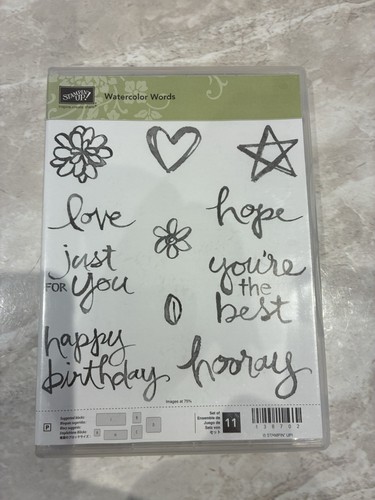 STAMPIN' UP!
Watercolor Words
love
hope
just
FOR you
you're
the
best
happy
birthday
hooray
Images at 75%
P
Set of
Ensemble de
Juego de
Satz von
セット
11
© STAMPIN' UP!